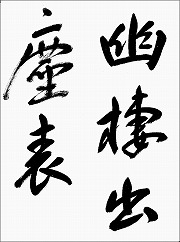 幽棲出
塵表